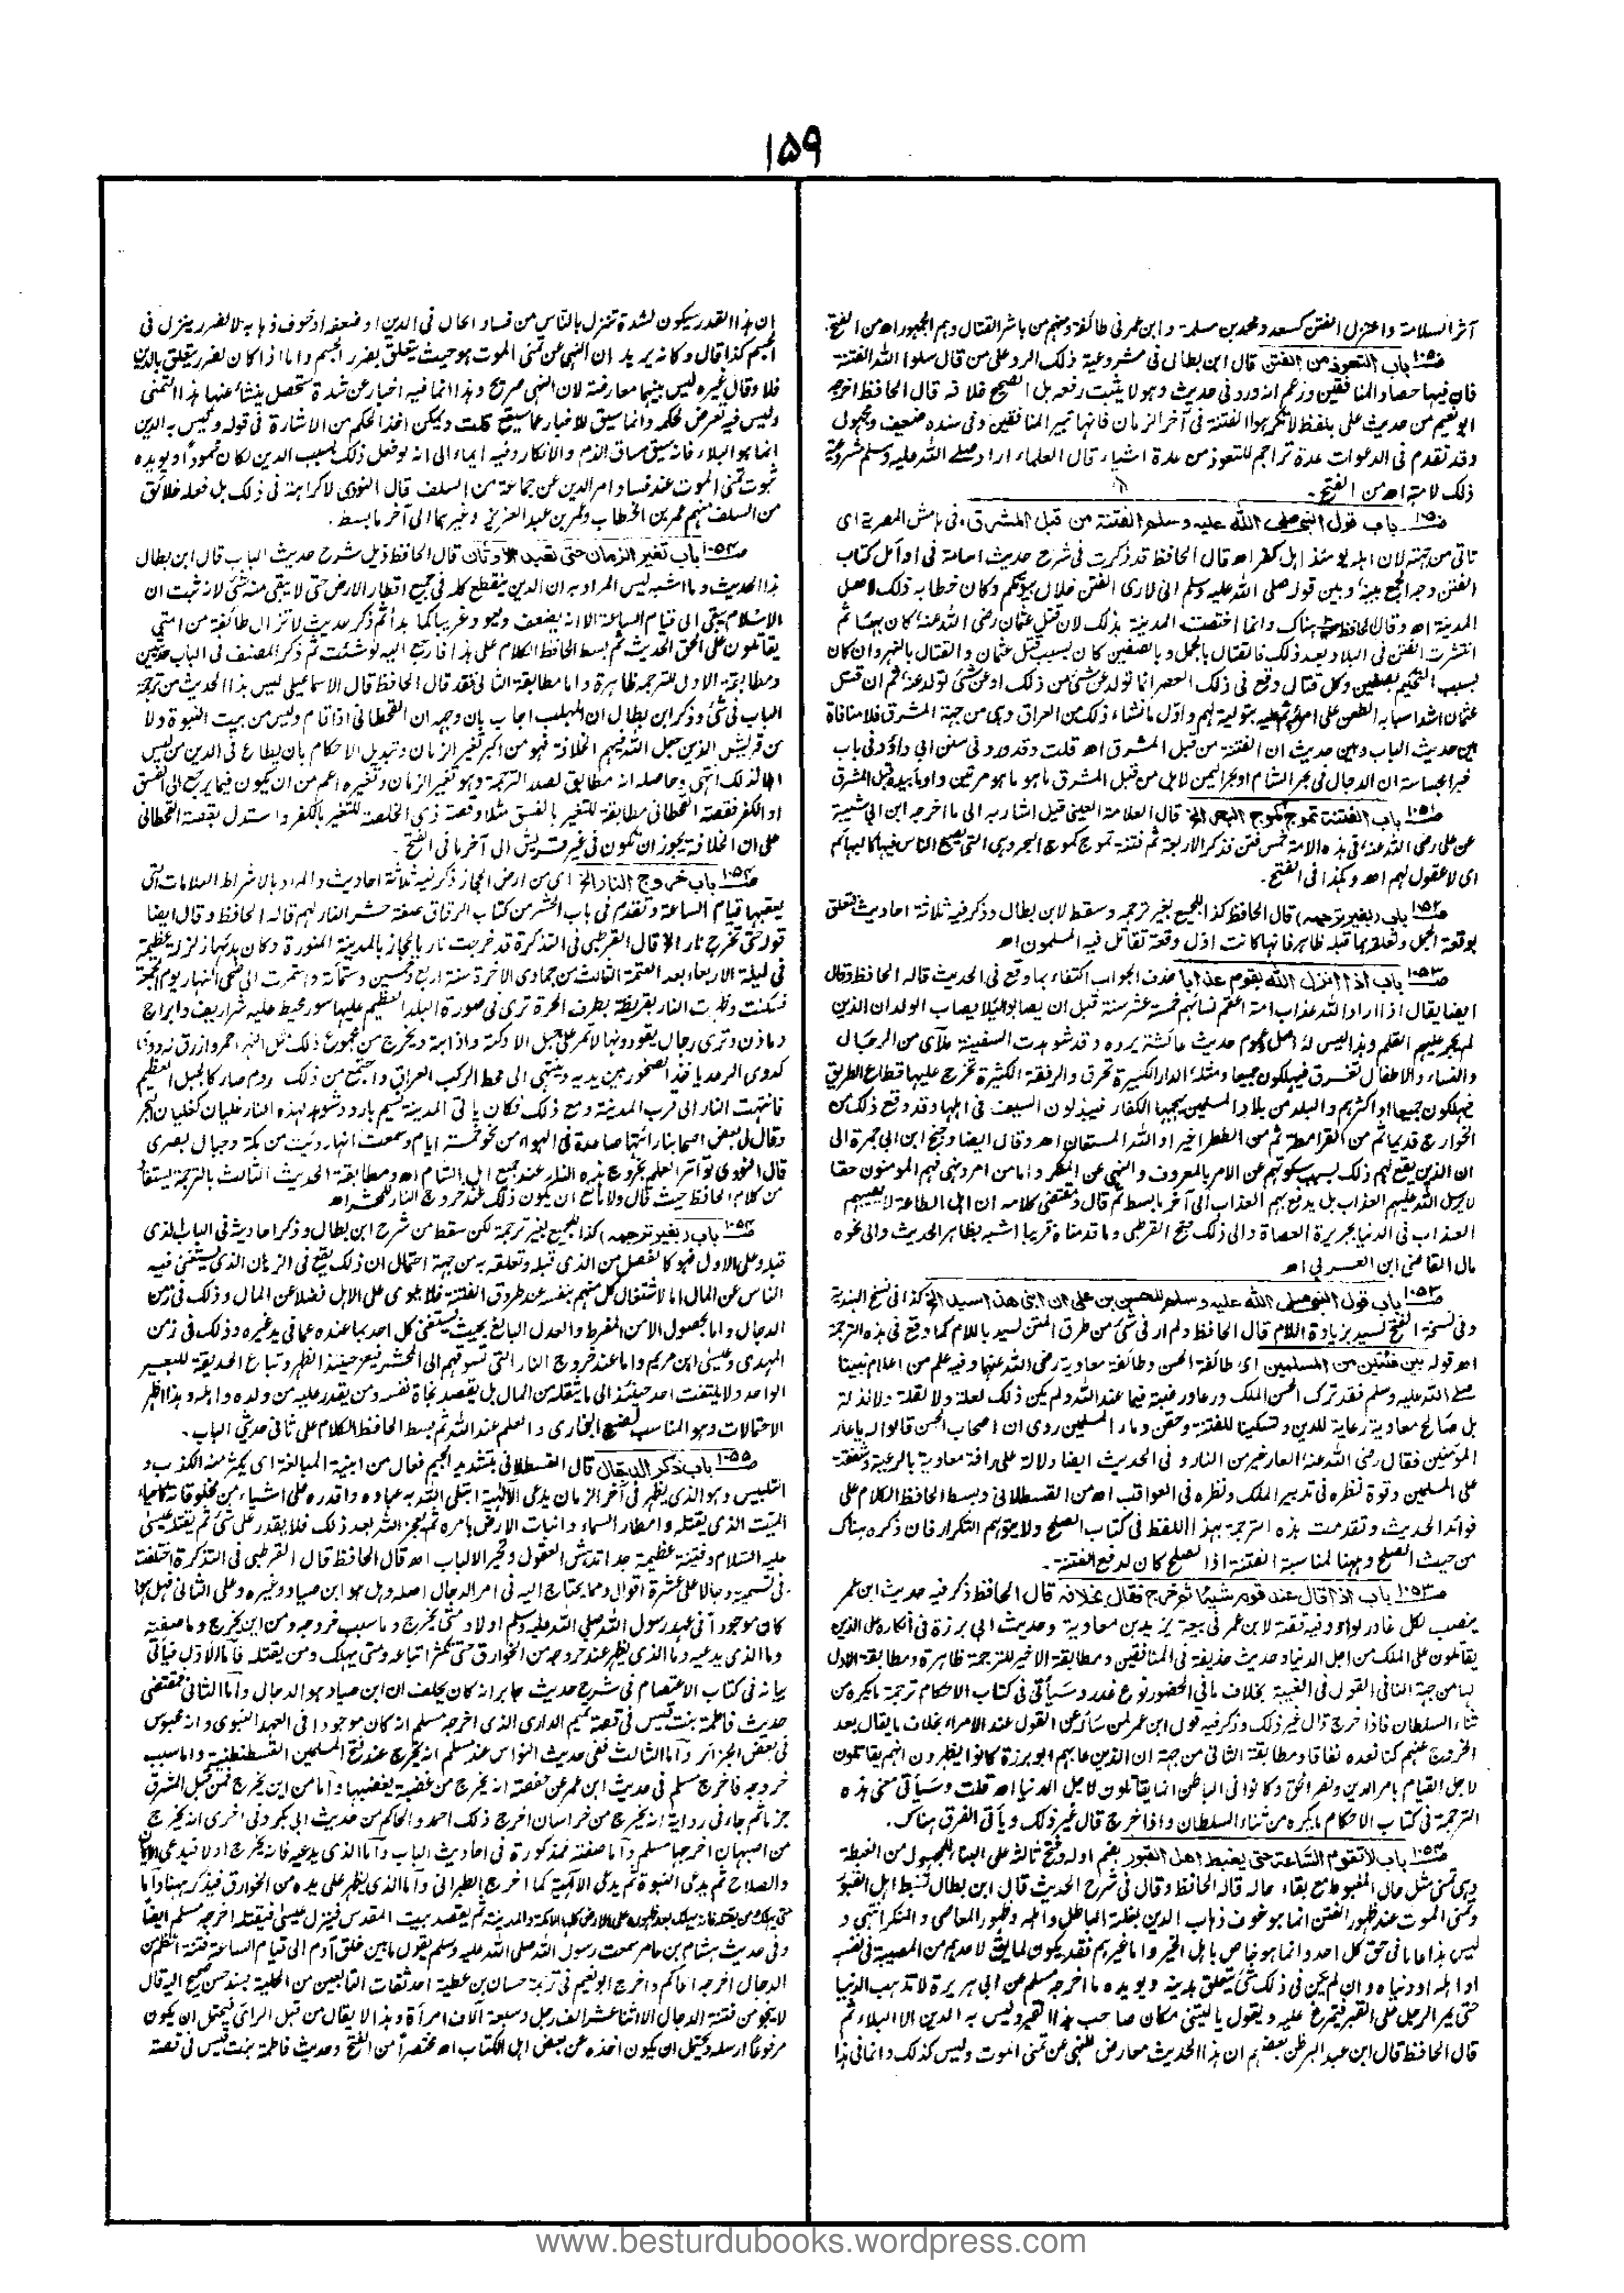 ۱۵۹
آثر السلامة واعتزل الفتن كسعد ومحمد بن مسلمة وابن عمر فى طائفة ومنهم من باشر القتال وهم الجمهور اه من الفتح.
ص۱۰۵۰ باب التعوذ من الفتن قال ابن بطال فى مشروعية ذلك الرد على من قال سلوا الله الفتنة
فان فيها حصاد المنافقين وزعم انه ورد فى حديث وهو لا يثبت رفعه بل الصحيح خلافه قال الحافظ اخرجه
ابو نعيم من حديث على بلفظ لا تكرهوا الفتنة فى آخر الزمان فانها تبير المنافقين وفى سنده ضعيف ومجهول
وقد تقدم فى الدعوات عدة تراجم للتعوذ من عدة اشياء قال العلماء اراد صلے الله عليه وسلم مشروعية
ذلك لامته اه من الفتح۔
ص۱۰۵۰ باب قول النبى صلى الله عليه وسلم الفتنة من قبل المشرق، فى هامش المصرية اى
تاتى من جهته لان اهله يومئذ اهل كفر اه قال الحافظ قد ذكرت فى شرح حديث اسامة فى اوائل كتاب
الفتن وجه الجمع بينه وبين قوله صلى الله عليه وسلم انى لارى الفتن خلال بيوتكم وكان خطابه ذلك لاهل
المدينة اه وقال الحافظ هناك وانما اختصت المدينة بذلك لان قتل عثمان رضى الله عنه كان بها ثم
انتشرت الفتن فى البلاد بعد ذلك فالقتال بالجمل وبالصفين كان بسبب قتل عثمان والقتال بالنهروان كان
بسبب التحكيم بصفين وكل قتال وقع فى ذلك العصر انما تولد عن شئ من ذلك او عن شئ تولد عنه ثم ان قتل
عثمان اشد اسبابه الطعن على امرائه ثم عليه بتوليته لهم واوّل ما نشاء ذلك من العراق وهى من جهة المشرق فلا منافاة
بين حديث الباب وبين حديث ان الفتنة من قبل المشرق اه قلت وقد ورد فى سنن ابى داؤد فى باب
خبر الجساسة ان الدجال فى بحر الشام او بحر اليمن لا بل من قبل المشرق ما هو ما هو مرتين واومأ بيده قبل المشرق
ص۱۰۵۱ باب الفتنة تموج كموج البحر الخ قال العلامة العينى قيل اشار به الى ما اخرجه ابن ابى شيبة
عن على رضى الله عنه، فى هذه الامة خمس فتن فذكر الاربعة ثم فتنة تموج كموج البحر وهى التى يصبح الناس فيها كالبهائم
اى لا عقول لهم اه وكذا فى الفتح۔
ص۱۰۵۲ باب (بغير ترجمه) قال الحافظ كذا للجميع بغير ترجمه وسقط لابن بطال وذكر فيه ثلاثة احاديث تتعلق
بوقعة الجمل وتعلقه بما قبله ظاهر فانها كانت اوّل وقعة تقاتل فيه المسلمون اه
ص۱۰۵۳ باب اذا انزل الله بقوم عذابا حذف الجواب اكتفاء بما وقع فى الحديث قاله الحافظ وقال
ايضا يقال اذا اراد الله عذاب امة اعقم نساءهم خمسة عشر سنة قبل ان يصابوا لئلا يصاب الولدان الذين
لم يجر عليهم القلم وهذا ليس له اصل وعموم حديث عائشة يرده وقد شوهدت السفينة ملآى من الرجال
والنساء والاطفال تغرق فيهلكون جميعا ومثله الدار الكبيرة تحرق والرفقة الكثيرة تخرج عليها قطاع الطريق
فيهلكون جميعا او اكثرهم والبلد من بلاد المسلمين يهجمها الكفار فيبذلون السيف فى اهلها وقد وقع ذلك من
الخوارج قديما ثم من القرامطة ثم من الططر اخيرا والله المستعان اه وقال ايضا وجنح ابن ابى جمرة الى
ان الذين يقع لهم ذلك بسبب سكوتهم عن الامر بالمعروف والنهى عن المنكر واما من امر ونهى فهم المومنون حقا
لا يرسل الله عليهم العذاب بل يدفع بهم العذاب الى آخر ما بسط ثم قال ومقتضى كلامه ان اهل الطاعة لا يصيبهم
العذاب فى الدنيا بجريرة العصاة والى ذلك جنح القرطبى وما قدمناه قريبا اشبه بظاهر الحديث والى نحوه
مال القاضى ابن العربى اه
ص۱۰۵۳ باب قول النبى صلى الله عليه وسلم للحسن بن على ان ابنى هذا سيد الخ كذا فى نسخ الهندية
وفى نسخة الفتح لسيد بزيادة اللام قال الحافظ ولم ار فى شئ من طرق المتن لسيد باللام كما وقع فى هذه الترجمة
اه قوله بين فئتين من المسلمين اى طائفة الحسن وطائفة معاوية رضى الله عنهما وفيه علم من اعلام نبينا
صلے الله عليه وسلم فقد ترك الحسن الملك ورعا ورغبة فيما عند الله ولم يكن ذلك لعلة ولا لقلة ولا لذلة
بل صالح معاوية رعاية للدين وتسكينا للفتنة وحقن دماء المسلمين روى ان اصحاب الحسن قالوا له يا عار
المؤمنين فقال رضى الله عنه العار خير من النار وفى الحديث ايضا دلالة على رأفة معاوية بالرعية وشفقته
على المسلمين وقوة نظره فى تدبير الملك ونظره فى العواقب اه من القسطلانى وبسط الحافظ الكلام على
فوائد الحديث وتقدمت هذه الترجمة بهذا اللفظ فى كتاب الصلح ولا يتوهم التكرار فان ذكره هناك
من حيث الصلح وههنا لمناسبة الفتنة اذ الصلح كان لدفع الفتنة۔
ص۱۰۵۳ باب اذا قال عند قوم شيئا ثم خرج فقال بخلافه قال الحافظ ذكر فيه حديث ابن عمر
ينصب لكل غادر لواء وفيه قصة لابن عمر فى بيعة يزيد بن معاوية وحديث ابى برزة فى انكاره على الذين
يقاتلون على الملك من اجل الدنيا وحديث حذيفة فى المنافقين ومطابقة الاخير للترجمة ظاهرة ومطابقة الاول
لها من جهة ان فى القول فى الغيبة بخلاف ما فى الحضور نوع غدر وسيأتى فى كتاب الاحكام ترجمة ما يكره من
ثناء السلطان فاذا خرج قال غير ذلك وذكر فيه قول ابن عمر لمن سأله عن القول عند الامراء بخلاف ما يقال بعد
الخروج عنهم كنا نعده نفاقا ومطابقة الثانى من جهة ان الذين عابهم ابو برزة كانوا يظهرون انهم يقاتلون
لاجل القيام بامر الدين ونصر الحق وكانوا فى الباطن انما يقاتلون لاجل الدنيا اه قلت وسيأتى معنى هذه
الترجمة فى كتاب الاحكام ما يكره من ثناء السلطان واذا خرج قال غير ذلك ويأتى الفرق هناك۔
ص۱۰۵۴ باب لا تقوم الساعة حتى يغبط اهل القبور بضم اوله وفتح ثالثه على البناء للمجهول من الغبطة
وهى تمنى مثل حال المغبوط مع بقاء حاله قاله الحافظ وقال فى شرح الحديث قال ابن بطال تغبط اهل القبور
وتمنى الموت عند ظهور الفتن انما هو خوف ذهاب الدين بغلبة الباطل واهله وظهور المعاصى والمنكر انتهى و
ليس هذا عاما فى حق كل احد وانما هو خاص باهل الخير واما غيرهم فقد يكون لما يقع لاحدهم من المصيبة فى نفسه
او اهله او دنياه وان لم يكن فى ذلك شئ يتعلق بدينه ويويده ما اخرجه مسلم عن ابى هريرة لا تذهب الدنيا
حتى يمر الرجل على القبر فيتمرغ عليه ويقول يا ليتنى مكان صاحب هذا القبر وليس به الدين الا البلاء ثم
قال الحافظ قال ابن عبد البر ظن بعضهم ان هذا الحديث معارض للنهى عن تمنى الموت وليس كذلك وانما فى هذا
ان هذا القدر سيكون لشدة تنزل بالناس من فساد الحال فى الدين او ضعفه او خوف ذهابه لا لضرر ينزل فى
الجسم كذا قال وكانه يريد ان النهى عن تمنى الموت هو حيث يتعلق بضرر الجسم واما اذا كان لضرر يتعلق بالدين
فلا وقال غيره ليس بينهما معارضة لان النهى صريح وهذا انما فيه اخبار عن شدة ستحصل ينشأ عنها هذا التمنى
وليس فيه تعرض لحكمه وانما سيق للاخبار عما سيقع قلت ويمكن اخذ الحكم من الاشارة فى قوله وليس به الدين
انما هو البلاء فانه سيق مساق الذم والانكار وفيه ايماء الى انه لو فعل ذلك بسبب الدين لكان محمودا ويويده
ثبوت تمنى الموت عند فساد امر الدين عن جماعة من السلف قال النووى لا كراهة فى ذلك بل فعله خلائق
من السلف منهم عمر بن الخطاب وعمر بن عبد العزيز وغيرهما الى آخر ما بسط۔
ص۱۰۵۴ باب تغير الزمان حتى تعبد الاوثان قال الحافظ ذيل شرح حديث الباب قال ابن بطال
هذا الحديث وما اشبه ليس المراد به ان الدين ينقطع كله فى جميع اقطار الارض حتى لا يبقى منه شئ لانه ثبت ان
الاسلام يبقى الى قيام الساعة الا انه يضعف ويعود غريبا كما بدأ ثم ذكر حديث لا تزال طائفة من امتى
يقاتلون على الحق الحديث ثم بسط الحافظ الكلام على هذا فارجع اليه لو شئت ثم ذكر المصنف فى الباب حديثين
ومطابقة الاول للترجمة ظاهرة واما مطابقة الثانى فقد قال الحافظ قال الاسماعيلى ليس هذا الحديث من ترجمة
الباب فى شئ وذكر ابن بطال ان المهلب اجاب بان وجهه ان القحطانى اذا قام وليس من بيت النبوة ولا
من قريش الذين جعل الله فيهم الخلافة فهو من اكبر تغير الزمان وتبديل الاحكام بان يطاع فى الدين من ليس
اهلا لذلك انتهى وحاصله انه مطابق لصدر الترجمة وهو تغير الزمان وتغيره اعم من ان يكون فيما يرجع الى الفسق
او الكفر فقصة القحطانى مطابقة للتغير بالفسق مثلا وقصة ذى الخلصة للتغير بالكفر واستدل بقصة القحطانى
على ان الخلافة يجوز ان تكون فى غير قريش الى آخر ما فى الفتح۔
ص۱۰۵۴ باب خروج النار الخ اى من ارض الحجاز ذكر فيه ثلاثة احاديث والمراد بالاشراط العلامات التى
يعقبها قيام الساعة وتقدم فى باب الحشر من كتاب الرقاق صفة حشر النار لهم قاله الحافظ وقال ايضا
قوله حتى تخرج نار الخ قال القرطبى فى التذكرة قد خرجت نار بالحجاز بالمدينة المنورة وكان بدئها زلزلة عظيمة
فى ليلة الاربعاء بعد العتمة الثالث من جمادى الآخرة سنة اربع وخمسين وستمأئة واستمرت الى ضحى النهار يوم الجمعة
فسكنت وظهرت النار بقريظة بطرف الحرة ترى فى صورة البلد العظيم عليها سور محيط عليه شراريف وابراج
ومآذن وترى رجال يقودونها لا تمر على جبل الا دكته واذابته ويخرج من مجموع ذلك مثل النهر احمر وازرق له دوى
كدوى الرعد ياخذ الصخور بين يديه وينتهى الى محط الركب العراقى واجتمع من ذلك ردم صار كالجبل العظيم
فانتهت النار الى قرب المدينة ومع ذلك فكان ياتى المدينة نسيم بارد وشوهد لهذه النار غليان كغليان البحر
وقال لى بعض اصحابنا رأيتها صاعدة فى الهواء من نحو خمسة ايام وسمعت انها رئيت من مكة وجبال بصرى
قال النووى تواتر العلم بخروج هذه النار عند جميع اهل الشام اه ومطابقة الحديث الثالث بالترجمة يستفاد
من كلام الحافظ حيث قال ولا مانع ان يكون ذلك عند خروج النار للحشر اه
ص۱۰۵۴ باب (بغير ترجمه) كذا للجميع بغير ترجمة لكن سقط من شرح ابن بطال وذكر احاديثه فى الباب الذى
قبله وعلى الاول فهو كالفصل من الذى قبله وتعلقه به من جهة احتمال ان ذلك يقع فى الزمان الذى يستغنى فيه
الناس عن المال اما لاشتغال كل منهم بنفسه عند طروق الفتنة فلا يلوى على الاهل فضلا عن المال وذلك فى زمن
الدجال واما بحصول الامن المفرط والعدل البالغ بحيث يستغنى كل احد بما عنده عما فى يد غيره وذلك فى زمن
المهدى وعيسى ابن مريم واما عند خروج النار التى تسوقهم الى المحشر فيعز حينئذ الظهر وتباع الحديقة للبعير
الواحد ولا يلتفت احد حينئذ الى ما يثقله من المال بل يقصد نجاة نفسه ومن يقدر عليه من ولده واهله وهذا اظهر
الاحتمالات وهو المناسب لصنيع البخارى والعلم عند الله ثم بسط الحافظ الكلام على ثانى حديثى الباب۔
ص۱۰۵۵ باب ذكر الدجال قال القسطلانى بتشديد الجيم فعال من ابنية المبالغة اى يكثر منه الكذب و
التلبيس وهو الذى يظهر فى آخر الزمان يدعى الالٰهية ابتلى الله به عباده واقدره على اشياء من مخلوقاته كاحياء
الميت الذى يقتله وامطار السماء وانبات الارض بامره ثم يعجزه الله بعد ذلك فلا يقدر على شئ ثم يقتله عيسى
عليه السلام وفتنته عظيمة جدا تدهش العقول وتحير الالباب اه قال الحافظ قال القرطبى فى التذكرة اختلف
فى تسميته دجالا على عشرة اقوال ومما يحتاج اليه فى امر الدجال اصله وهل هو ابن صياد وغيره وعلى الثانى فهل
كان موجودا فى عهد رسول الله صلى الله عليه وسلم او لا ومتى يخرج وما سبب خروجه ومن اين يخرج وما صفته
وما الذى يدعيه وما الذى يظهر عند خروجه من الخوارق حتى تكثر اتباعه ومتى يهلك ومن يقتله فأما الاول فيأتى
بيانه فى كتاب الاعتصام فى شرح حديث جابر انه كان يحلف ان ابن صياد هو الدجال واما الثانى فمقتضى
حديث فاطمة بنت قيس فى قصة تميم الدارى الذى اخرجه مسلم انه كان موجودا فى العهد النبوى وانه محبوس
فى بعض الجزائر وأما الثالث ففى حديث النواس عند مسلم انه يخرج عند فتح المسلمين القسطنطنية واما سبب
خروجه فاخرج مسلم فى حديث ابن عمر عن حفصة انه يخرج من غضبة يغضبها وأما من اين يخرج فمن قبل المشرق
جزما ثم جاء فى رواية انه يخرج من خراسان اخرج ذلك احمد والحاكم من حديث ابى بكر وفى اخرى انه يخرج
من اصبهان اخرجها مسلم وأما صفته فمذكورة فى احاديث الباب وأما الذى يدعيه فانه يخرج اولا فيدعى الايمان
والصلاح ثم يدعى النبوة ثم يدعى الالٰهية كما اخرج الطبرانى وأما الذى يظهر على يده من الخوارق فيذكر ههنا وأما
متى يهلك ومن يقتله فانه يهلك بعد ظهوره على الارض كلها الا مكة والمدينة ثم يقصد بيت المقدس فينزل عيسى فيقتله اخرجه مسلم ايضا
وفى حديث هشام بن عامر سمعت رسول الله صلى الله عليه وسلم يقول ما بين خلق آدم الى قيام الساعة فتنة اعظم من
الدجال اخرجه الحاكم واخرج ابو نعيم فى ترجمة حسان بن عطية احد ثقات التابعين من الحلية بسند حسن صحيح اليه قال
لا ينجو من فتنة الدجال الا اثنا عشر الف رجل وسبعة آلاف امرأة وهذا لا يقال من قبل الرأى فيحتمل ان يكون
مرفوعا ارسله ويحتمل ان يكون اخذه عن بعض اهل الكتاب اه مختصرا من الفتح وحديث فاطمة بنت قيس فى قصة
www.besturdubooks.wordpress.com